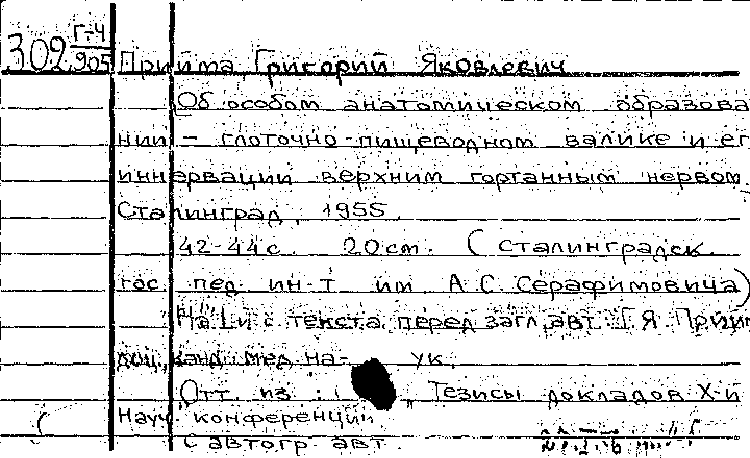 Г-4
302 905
Прийма, Григорий Яковлевич
Об особом анатомическом образова
нии - глоточно-пищеводном валике и ег
иннервации верхним гортанным нервом.
Сталинград, 1955.
42-44 с. 20 см. (Сталинградск.
гос. пед. ин-т им А.С. Серафимовича)
На 1-й с. текста перед загл. авт. Г.Я. Прийм
доц., канд. мед. на- ук.
Отт. из: Тезисы докладов X-й
Науч. конференции
С автогр. авт.